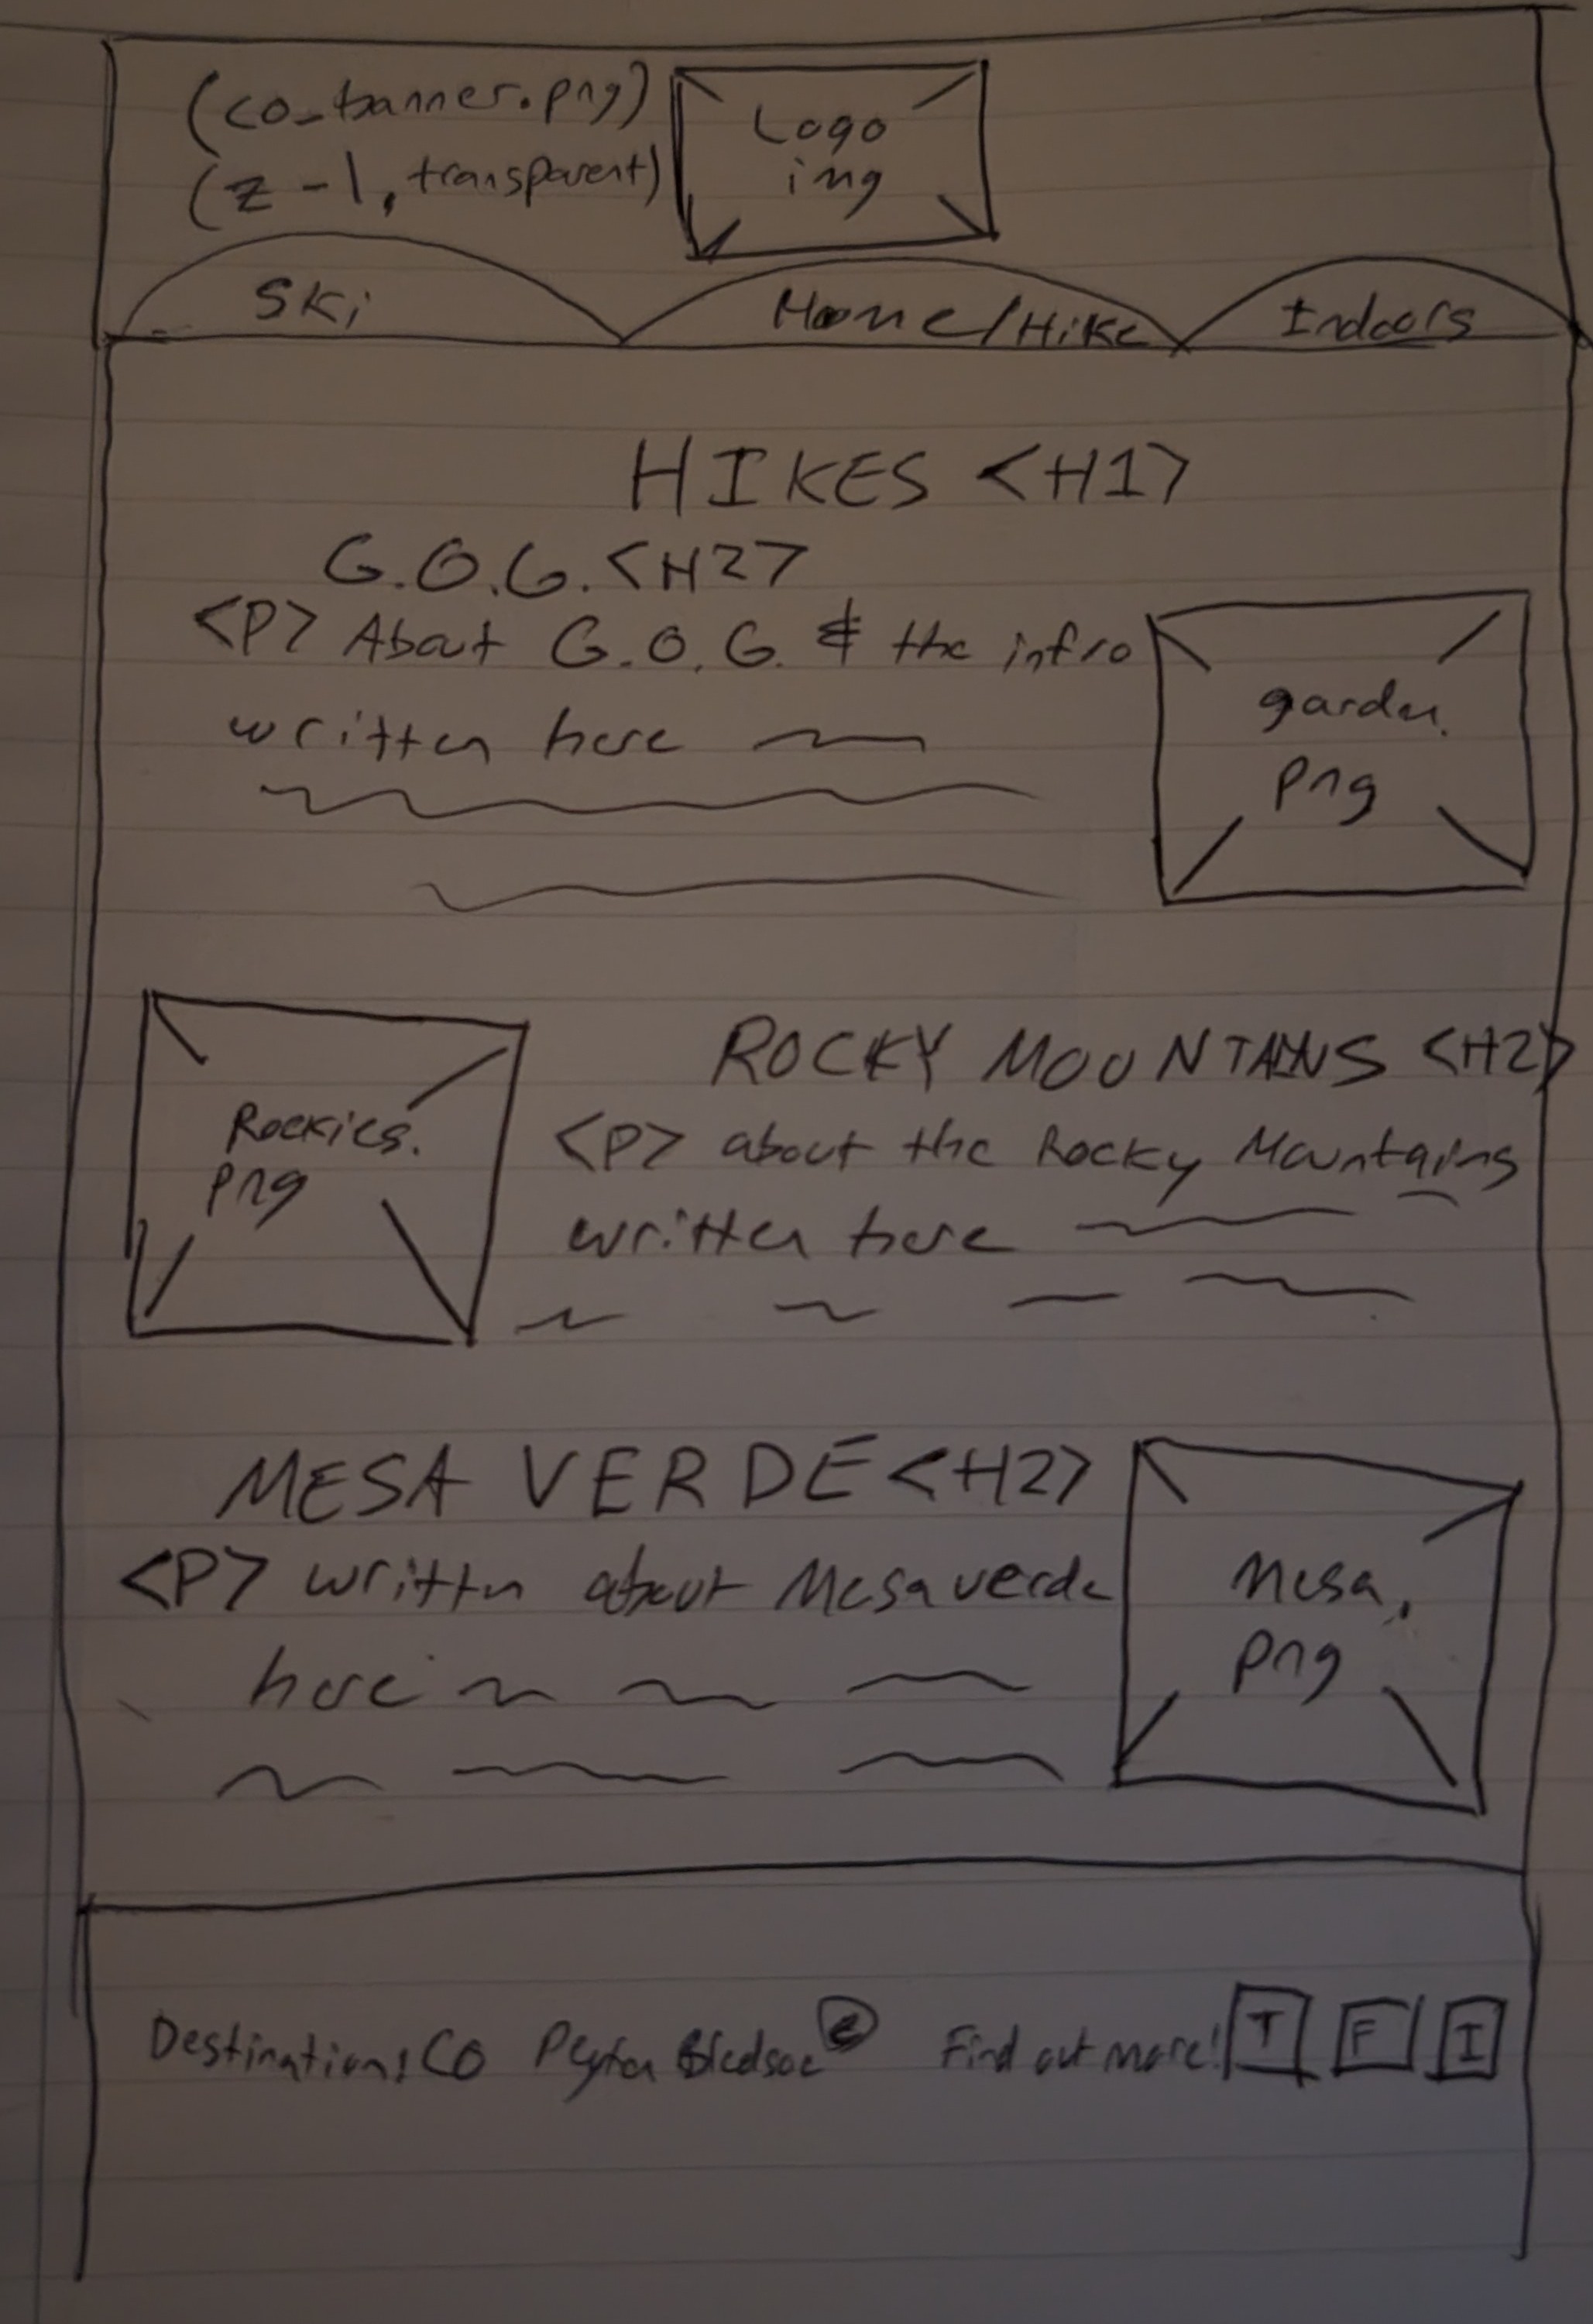 (co_banner.png)
(z -1, transparent)
Logo
img
Ski
Home/Hike
Indoors
HIKES <H1>
G.O.G. <H2>
<P> About G.O.G. & the info
written here
garden.
png
Rockies.
png
ROCKY MOUNTAINS <H2>
<P> about the Rocky Mountains
written here
MESA VERDE <H2>
<P> written about Mesa verde
here
Mesa.
png
Destination: CO Peyton Bledsoe © Find out more! T F I